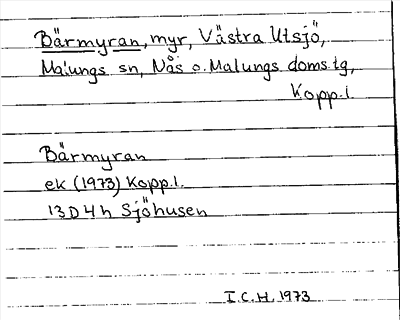 Bärmyran, myr, Västra Utsjö,
Malungs sn, Nås o. Malungs doms.tg,
Kopp.l.
Bärmyran
ek (1973) Kopp.l.
13D4h Sjöhusen
I.C.H. 1973